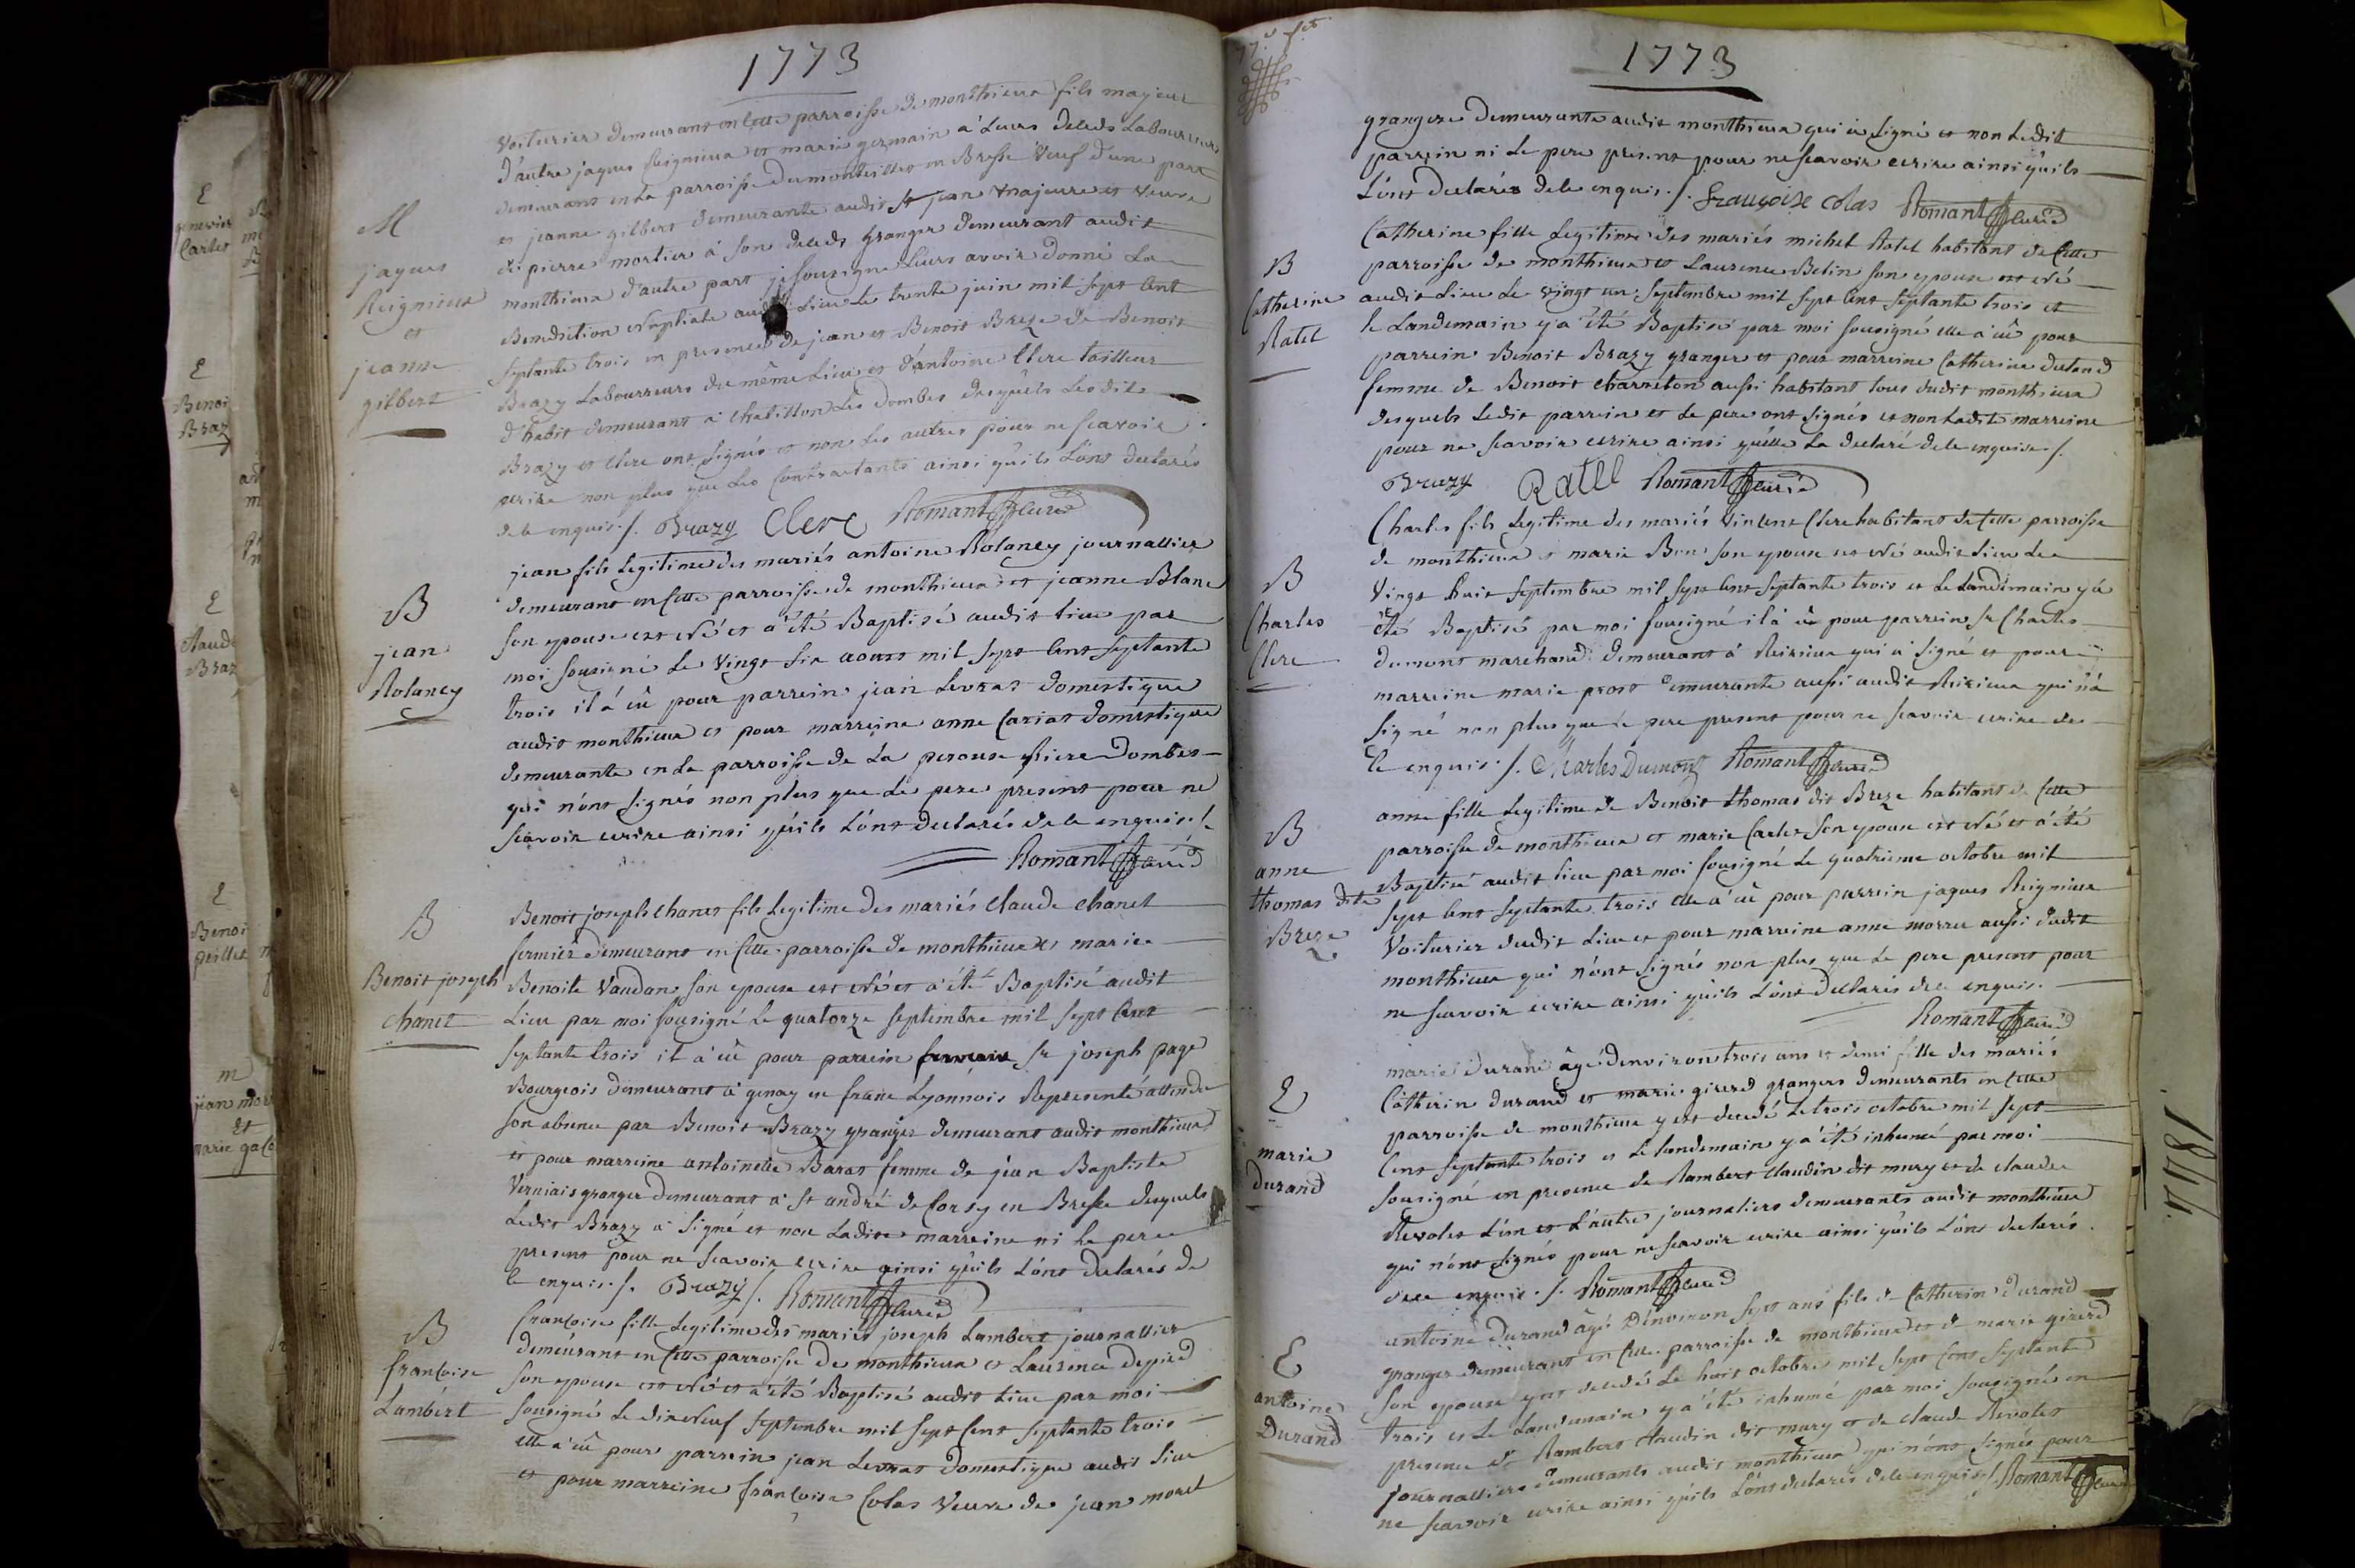 1773
voiturier demeurant en Cette parroisse de monthieux fils majeur
d'autre jaques Reignieux et marie germain à Leurs deceds Laboureurs
demeurant en La parroisse du montellier en Bresse veuf d'une part
et jeanne gilbert demeurante audit St jean majeure et veuve
de pierre mortier à son deceds granger demeurant audit
monthieux d'autre part je sousigné Leurs avoir donné La
Benediction Nuptiale audit Lieu Le trente juin mil sept Cent
septante trois en presence de jean et Benoit Breze de Benoit
Brazy Labourreurs du même Lieu et d'antoine Clerc tailleur
d'habit demeurant à Chatillon Les Dombes desquels Lesdits
Brazy et Clerc ont signés et non Les autres pour ne scavoir
ecrire non plus que Les Contractants ainsi qu'ils L'ont declarés
de le enquis ./. Brazy Clerc Romant Curé
M
jaques
Reignieux
et
jeanne
gilbert
jean fils Legitime des mariés antoine Rolancy journallier
demeurant en Cette parroisse de monthieux et jeanne Blanc
son epouse est Né et a été Baptisé audit Lieu par
moi sousigné Le vingt six aoust mil sept Cent septante
trois il a eû pour parrein jean Levrat domestique
audit monthieux et pour marreine anne Cariat domestique
demeurante en La parroisse de La perouse Dombes
qui n'ont signés non plus que Le pere present pour ne
scavoir ecrire ainsi qu'ils L'ont declarés de le enquis ./.
Romant Curé
B
jean
Rolancy
Benoit joseph Chanet fils Legitime des mariés Claude Chanet
fermier demeurant en Cette parroisse de monthieux et marie
Benoite Vaudan son epouse est Né et a été Baptisé audit
Lieu par moi sousigné Le quatorze septembre mil sept Cent
septante trois il a eû pour parrein Sr joseph page
Bourgeois demeurant à genay en franc Lyonnois Representé attendu
son absence par Benoit Brazy granger demeurant audit monthieux
et pour marreine antoinette Barat femme de jean Baptiste
Verniais granger demeurant à St andré de Corsy en Bresse desquels
Ledit Brazy a signé et non Ladite marreine ni Le pere
present pour ne scavoir ecrire ainsi qu'ils L'ont declarés de
le enquis ./. Brazy ./. Romant Curé
B
Benoit joseph
Chanet
francoise fille Legitime des mariés joseph Lambert journallier
demeurant en Cette parroisse de monthieux et Laurence depied
son epouse est Né et a été Baptisé audit Lieu par moi
sousigné Le dix Neuf septembre mil sept Cent septante trois
elle a eû pour parrein jean Levrat domestique audit Lieu
et pour marreine francoise Colas veuve de jean morel
B
francoise
Lambert
1773
grangere demeurante audit monthieux qui a signé et non Ledit
parrein ni Le pere present pour ne scavoir ecrire ainsi qu'ils
L'ont declarés de le enquis ./. Françoise Colas Romant Curé
Catherine fille Legitime des mariés michel Ratel habitant de Cette
parroisse de monthieux et Laurence Belin son epouse est Né
audit Lieu Le vingt un septembre mil sept Cent septante trois et
le Landemain y a été Baptisé par moi sousigné elle a eû pour
parrein Benoit Brazy granger et pour marreine Catherine
femme de Benoit Charreton aussi habitant tous dudit monthieux
desquels Ledit parrein et Le pere ont signés et non Ladite marreine
pour ne scavoir ecrire ainsi qu'elle La declaré de le enquise ./.
Brazy Ratel Romant Curé
B
Catherine
Ratel
Charles fils Legitime des mariés vincent Clerc habitant de Cette parroisse
de monthieux et marie Bon son epouse est Né audit Lieu Le
vingt huit septembre mil sept Cent septante trois et Le Landemain y a
été Baptisé par moi sousigné il a eû pour parrein Sr Charles
Dumont marchand demeurant à Reirieux qui a signé et pour
marreine marie prost demeurante aussi audit Reirieux qui n'a
signé non plus que Le pere present pour ne scavoir ecrire de
le enquis ./. Charles Dumont Romant Curé
B
Charles
Clerc
anne fille Legitime de Benoit thomas dit Breze habitant de Cette
parroisse de monthieux et marie Carlet son epouse est Né et a été
Baptisé audit Lieu par moi sousigné Le quatrieme octobre mil
sept Cent septante trois elle a eû pour parrein jaques Reignieux
voiturier dudit Lieu et pour marreine anne morru aussi dudit
monthieux qui n'ont signés non plus que Le pere present pour
ne scavoir ecrire ainsi qu'ils L'ont declarés de le enquis.
Romant Curé
B
anne
thomas dite
Breze
marie Durand âgé d'environ trois ans et demi fille des mariés
Catherin Durand et marie girerd grangers demeurants en Cette
parroisse de monthieux y est decedé Le trois octobre mil sept
Cent septante trois et Le Landemain y a été inhumé par moi
sousigné en presence de Rambert Claudin dit mury et de Claude
Revolet L'un et L'autre journaliers demeurants audit monthieux
qui n'ont signés pour ne scavoir ecrire ainsi qu'ils L'ont declarés
de le enquis ./. Romant Curé
E
marie
Durand
antoine Durand âgé d'environ sept ans fils de Catherin Durand
granger demeurant en Cette parroisse de monthieux et de marie girerd
son epouse y est decedé Le huit octobre mil sept Cent septante
trois et Le Landemain y a été inhumé par moi sousigné en
presence de Rambert Claudin dit mury et de Claude Revolet
journalliers demeurants audit monthieux qui n'ont signés pour
ne scavoir ecrire ainsi qu'ils L'ont declarés de le enquis ./. Romant Curé
E
antoine
Durand
1844.